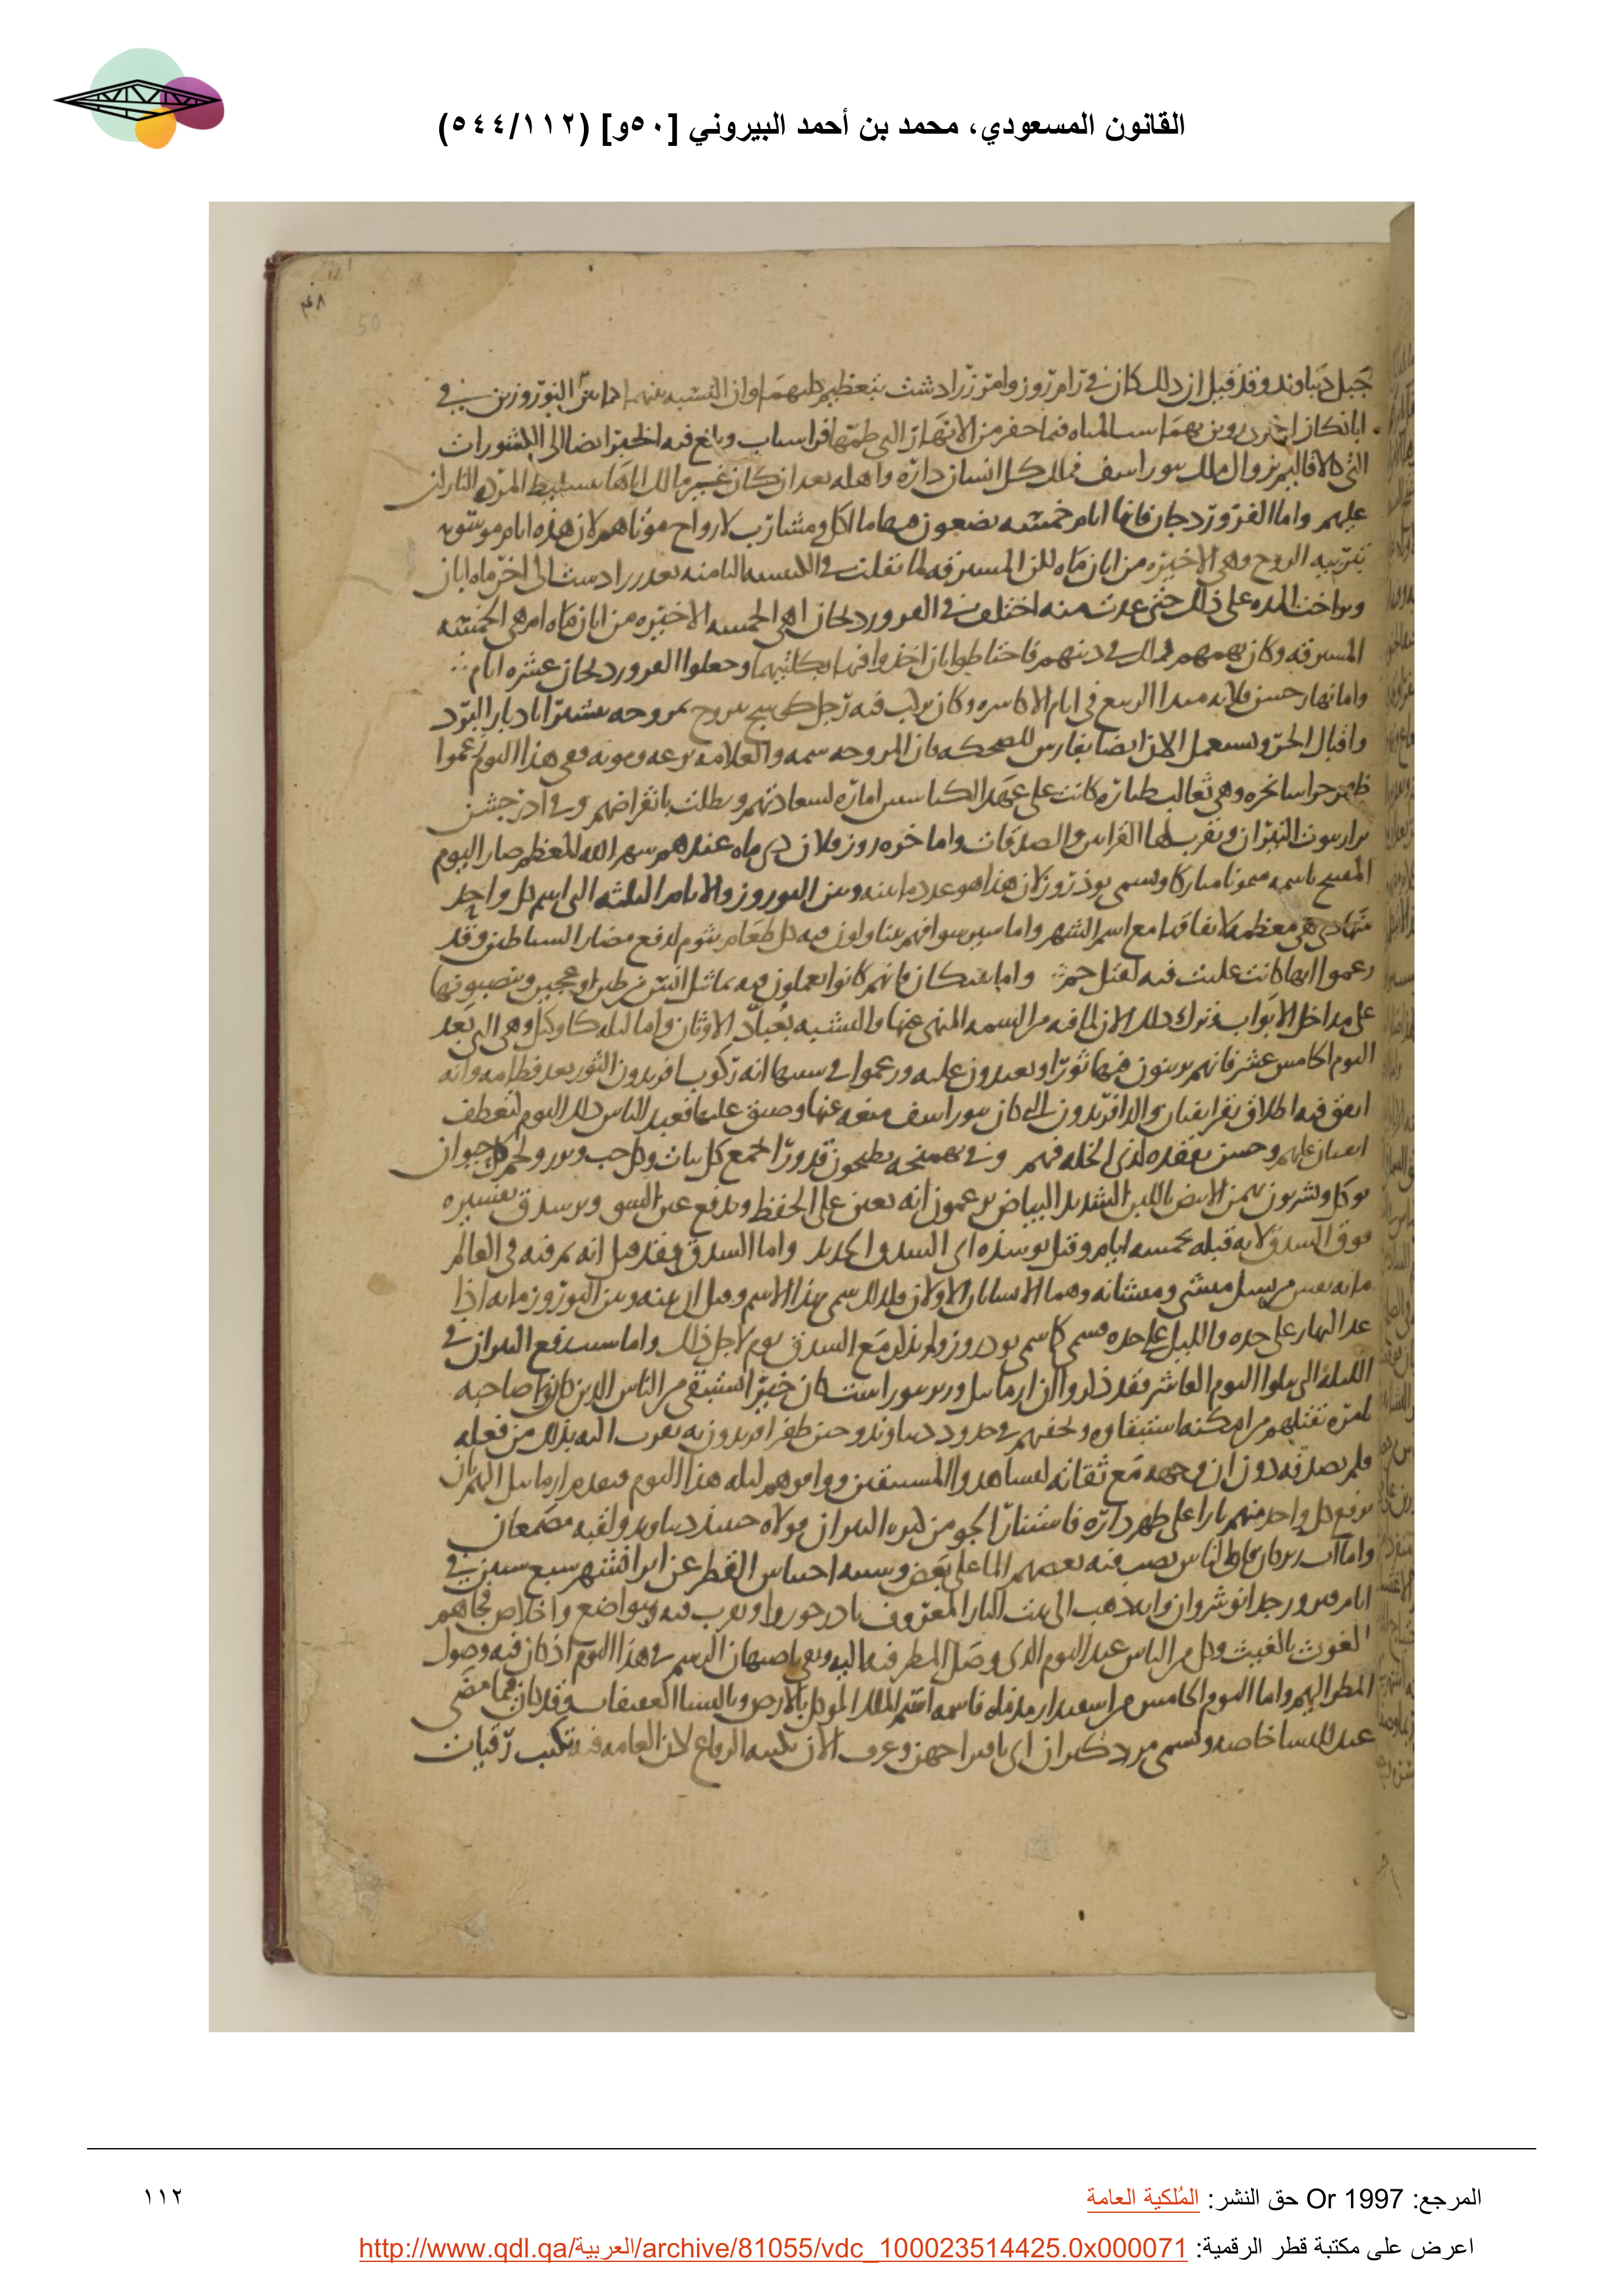 القانون المسعودي، محمد بن أحمد البيروني [٥٠و] (٥٤٤/١١٢)
٤٨
50
جبل دنباوند وقد قيل ان ذلك كان في رام روز وامر زرادشت بتعظيم كليهما وان النسبه بينهما النوروزين في
التي للاقاليم زوال ملك بيوراسف فملك كل انسان داره واهله بعد ان كان غير مالك اياها
عليهم واما الفروردجان فانها ايام خمسه يضعون فيها ماكل ومشارب لارواح موتاهم لان هذه ايام موسومه
بتربيه الروح وهي الاخيره من ابان ماه لكن المسترقه لما نقلت في الكبيسه الثامنه بعد زرادشت الى اخر ماه ابان
على ذلك حتى عدت منه اختلف في الفروردجان اهي الخمسه الاخيره من ابان ماه ام هي الخمسه
المسترقه وكان يهمهم ذلك في دينهم فاحتاطوا بان اخذوا فيها بكلتيهما وجعلوا الفروردجان عشره ايام
واما بهار جشن فلانه مبدا الربيع في ايام الاكاسره وكان يركب فيه رجل كوسج يتروح بمروحه مستبشرا بادبار البرد
واقبال الحر ويستعمل الان ايضا بفارس للضحكه في هذا اليوم زعموا
وهي ثعالب طياره كانت على عهد الكيانيين اماره لسعادتهم وبطلت بانقراضهم وفي اذر جشن
يزارون بيوت النيران ويقرب لها القرابين والصدقات واما خره روز فلان دي ماه عندهم شهر الله المعظم صار اليوم
المفتتح باسمه ميمونا مباركا ويسمى نوذ روز لان هذا هو عدد ما بينه وبين النوروز والايام الثلثه التي اسم كل واحد
منها دي هي معظمه لاتفاقها مع اسم الشهر واما سيرسوا فهم يتناولون فيه كل طعام بثوم لدفع مضار الشياطين وقد
زعموا انها كانت غلبت فيه لقتل جم واما بتيكان فانهم كانوا يعملون فيه تماثيل انس من طين او عجين وينصبونها
على مداخل الابواب وترك ذلك الان لما فيه من السمه المنهي عنها والتشبه بعباد الاوثان واما ليله كاوكيل وهي التي بعد
اليوم الخامس عشر فانهم يزينون فيها ثورا ويعيدون عليه وزعموا في سببها انه ركوب افريدون الثور بعد فطامه وانه
اتفق فيه اطلاق بقر اثفيان والد افريدون التي كان بيوراسف منعه عنها وضيق عليها فعيد الناس ذلك اليوم لتعطف
اثفيان عليهم وحسن تفقده لذي الخله فيهم وفي بهمنجه يطبخون قدورا تجمع كل نبات وكل حب وبزر ولحم كل حيوان
يوكل ويشربون بهمن الابيض باللبن الشديد البياض يزعمون انه يعين على الحفظ ويدفع عين السوء وبرسدق تفسيره
فوق السدق لانه قبله بخمسه ايام وقيل نوسذه اي السدق الجديد واما السدق فقد قيل انه تم فيه في العالم
مائه نفس من نسل ميشى وميشانه وهما الانسانان الاولان فلذلك سمي بهذا الاسم وقيل ان بينه وبين النوروز مائه اذا
عد النهار على حده والليل على حده لاجل ذلك واما سبب رفع النيران في
الليله التي يتلوها اليوم العاشر فقد ذكروا ان ارمائيل وزير بيوراسف كان خيرا استبقى من الناس الذين كان صاحبه
يامره بقتلهم من امكنه استبقاوه ويخفيهم في حدود دنباوند وحين ظفر افريدون به تقرب اليه بذلك من فعله
فلم يصدقه دون ان وجهه مع ثقاته ليشاهدوا المستبقين ووافوهم ليله هذا اليوم فتقدم ارمائيل اليهم بان
يرفع كل واحد منهم نارا على ظهر داره فاستنار الجو من كثره النيران فولاه حينئذ دنباوند ولقبه مصمغان
يصب فيه بعضهم الماء على بعض وسببه احتباس القطر عن ايرانشهر سبع سنين في
ايام فيروز جد انوشروان وانه ذهب الى بيت النار المعروف باذرخورا وتقرب فيه وتواضع واخلاص فجاهم
الغوث بالغيث وكل من الناس عيد اليوم الذي وصل المطر فيه اليه وبقي باصبهان الرسم في هذا اليوم اذ كان فيه وصول
المطر اليهم واما اليوم الخامس من اسفندارمذ ماه فاسمه اسم الملك الموكل بالارض وبالنساء العفيفات وقد كان فيما مضى
عيد للنساء خاصه ويسمى مردكيران اي باقتراحهن وعرف الان بكتبه الرقاع لان العامه فيه تكتب رقيات
المرجع: Or 1997 حق النشر: المُلكية العامة
١١٢
اعرض على مكتبة قطر الرقمية: http://www.qdl.qa/العربية/archive/81055/vdc_100023514425.0x000071